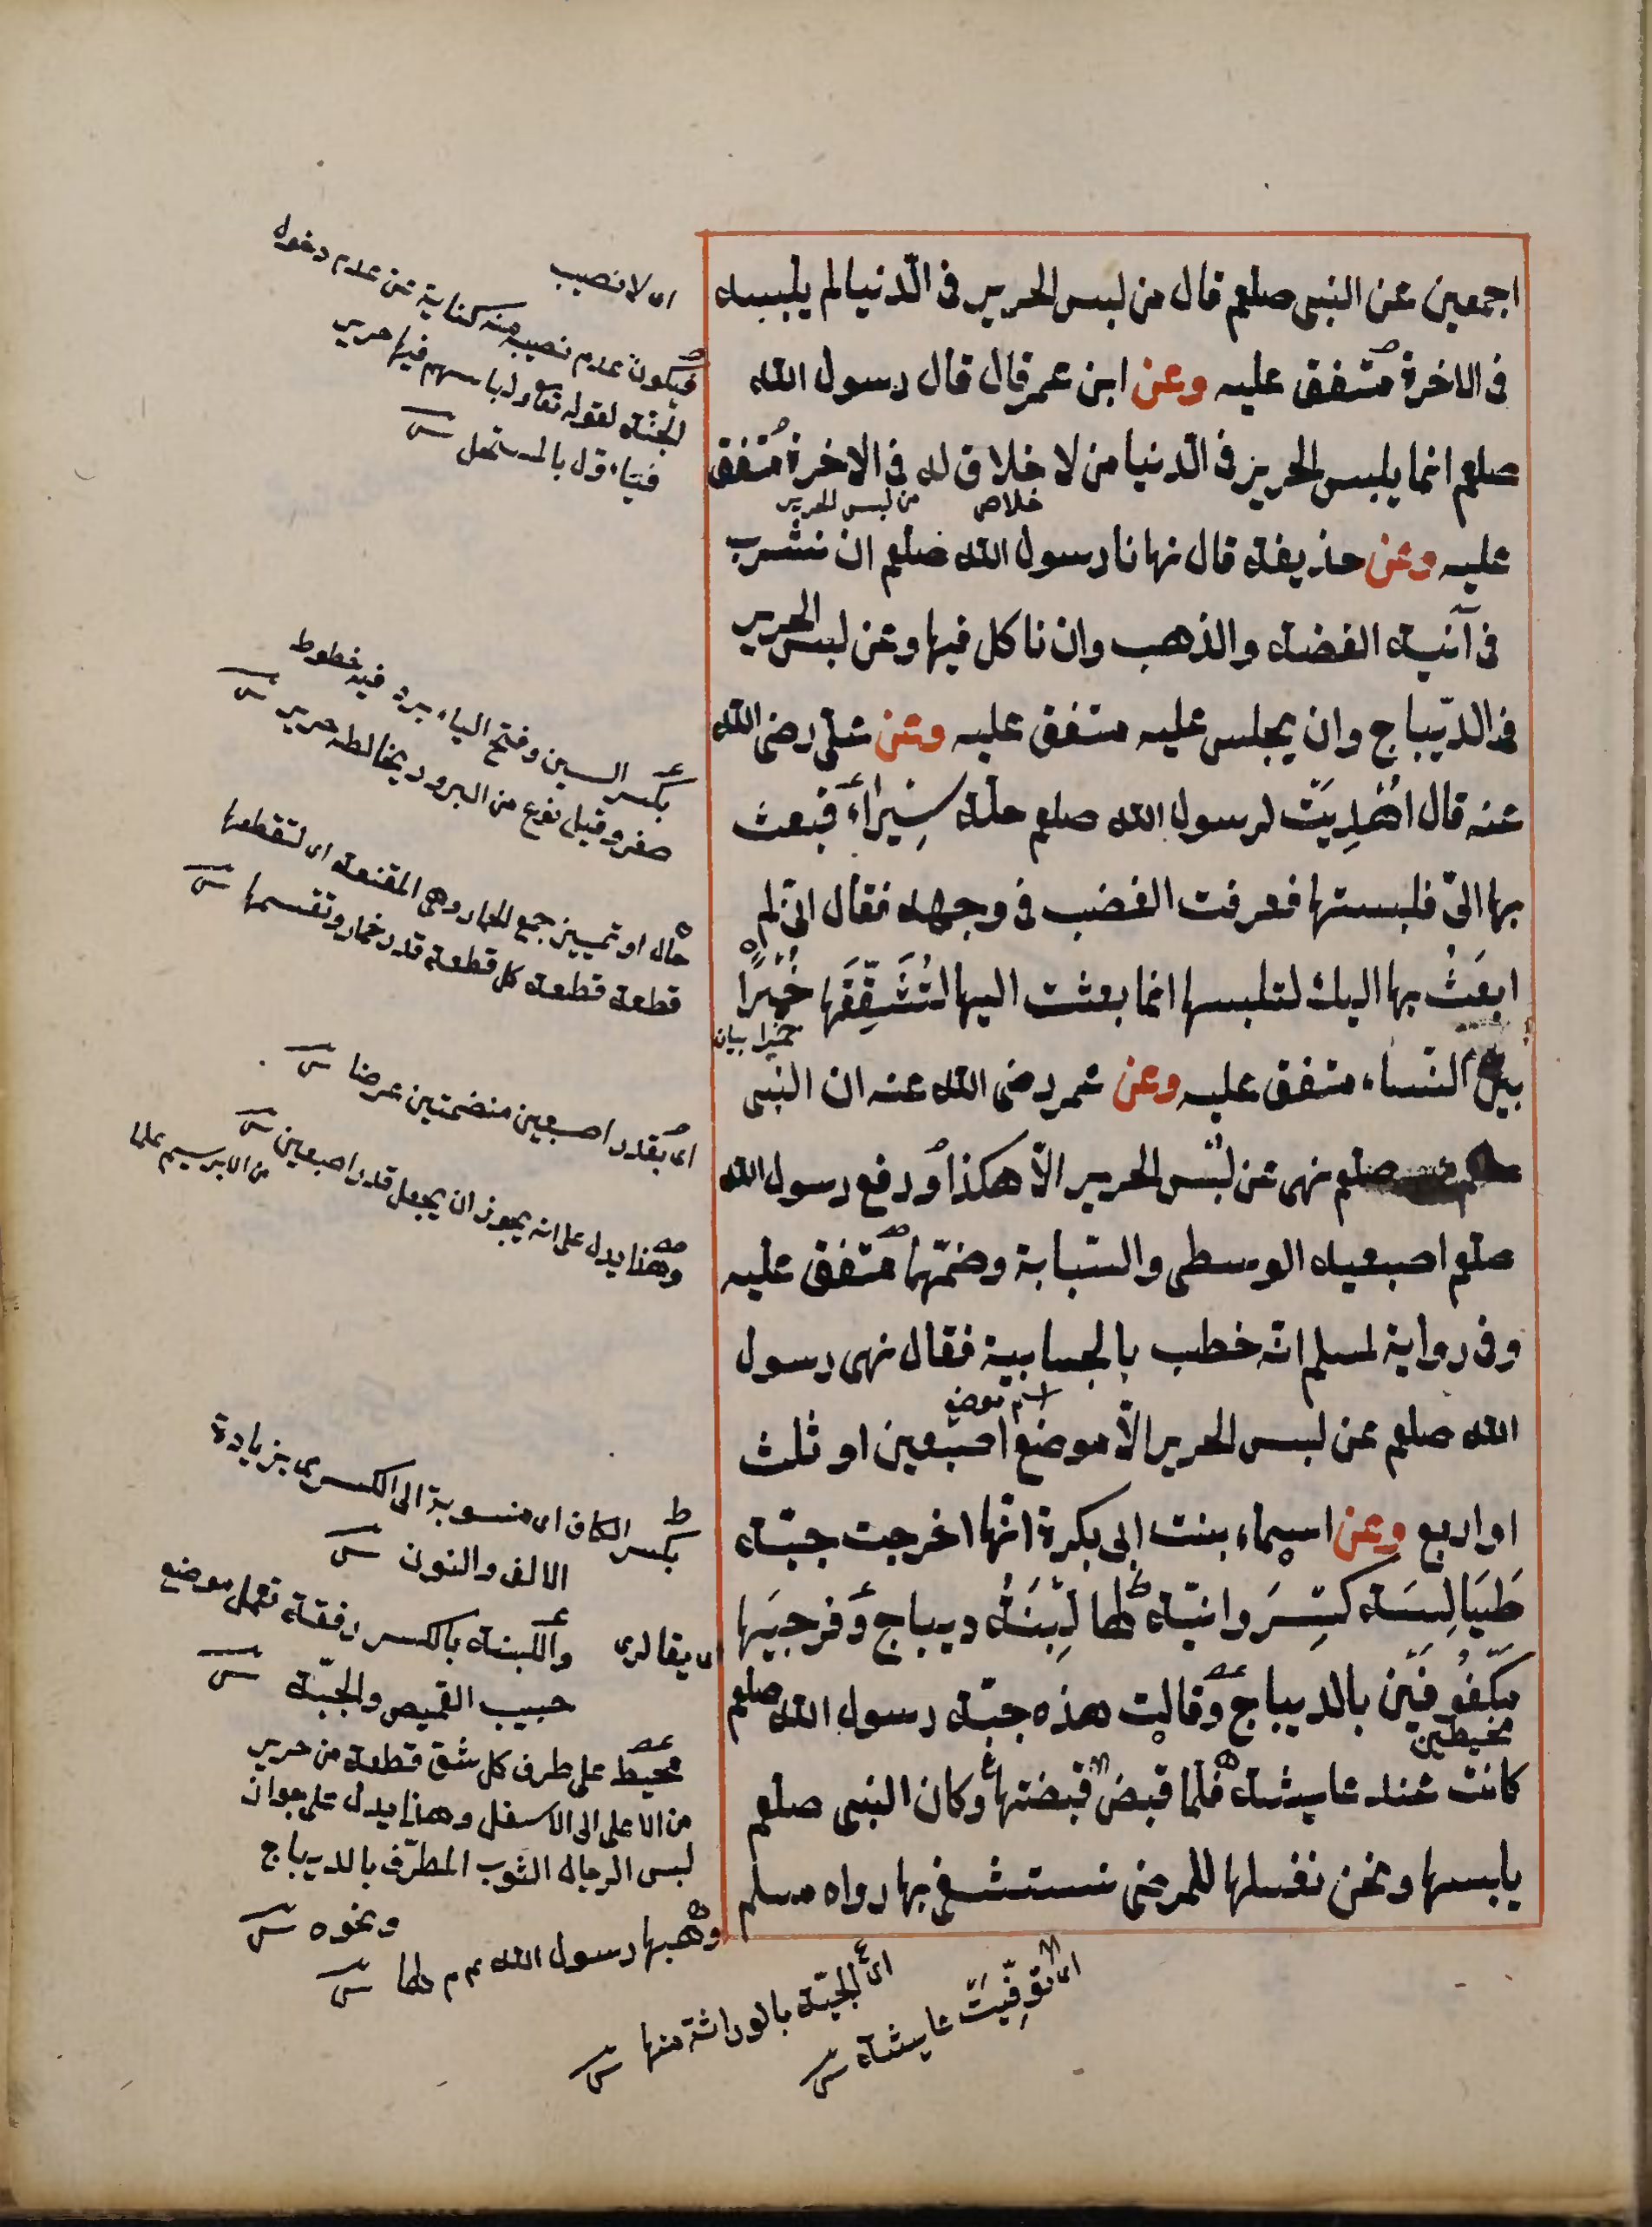 اجمعين عن النبى صلعم قال من لبس الحرير فى الدّنيا لم يلبسه
فى الاخرة متفق عليه وعن ابن عمر قال قال رسول الله
صلعم انما يلبس الحرير فى الدنيا من لا خلاق له فى الاخرة متفق
خلاص من لبس الحرير
عليه وعن حذيفة قال نهانا رسول الله صلعم ان نشرب
فى آنية الفضة والذهب وان ناكل فيها وعن لبس الحرير
والديّباج وان يجلس عليه متفق عليه وعن على رضى الله
عنه قال اُهْدِيَتْ لرسول الله صلعم حلة سِيَراءُ فبعث
بها الىّ فلبستها فعرفت الغضب فى وجهه فقال انى لم
ابعَثْ بها اليك لتلبسها انما بعثت اليها لتُشَقِّقَها خُمُرًا
خمرا بيان
بين النّساء متفق عليه وعن عمر رضى الله عنه ان النبى
صلعم نهى عن لُبْس الحرير الاّ هكذا ورفع رسول الله
صلعم اصبعيه الوسطى والسّبابة وضمّهما متفق عليه
وفى رواية لمسلم انه خطب بالجسابية فقال نهى رسول
اسم موضع
الله صلعم عن لبس الحرير الاّ موضع اصبعين او ثلث
او اربع وعن اسماء بنت ابى بكرة انّها اخرجت جبّة
طَيَالِسَة كِسْرَوانيّة لها لِبْنَةُ ديباج وفرجَيها
مكفُوفَيْن بالديباج وقالت هذه جبّة رسول الله صلعم
مخيطين
كانت عند عايشة فلما قبض قبضتها وكان النبى صلعم
يلبسها ونحن نغسلها للمرضى نستشفى بها رواه مسلم
اى لا نصيب
فيكون عدم نصيبه منه كناية عن عدم دخول
الجنّة لقوله تعالى ولباسهم فيها حرير
فيتاءول بالمستحل
بكسر السين وفتح الياء برد فيه خطوط
صفر وقيل نوع من البرود يخالطه حرير
حال او تمييز جمع الخمار وهى المقنعة اى لتقطعها
قطعة قطعة كل قطعة قدر خمار وتقسمها
اى بقدر اصبعين منضمتين عرضا
وهذا يدل على انه يجوز ان يجعل قدر اصبعين
من الابريسيم علما
بكسر الكاف اى منسوبة الى الكسرى بزيادة
الالف والنون
واللبنة بالكسر رفقة تعمل موضع
جيب القميص والجبّة
محيط على طرف كل شق قطعة من حرير
من الاعلى الى الاسفل وهذا يدل على جواز
لبس الرجال الثوب المطرّف بالديباج
ونحوه
وهبها رسول الله عم لها
اى الجبّة بالوراثة منها
اى تُوُفِّيَتْ عايشة